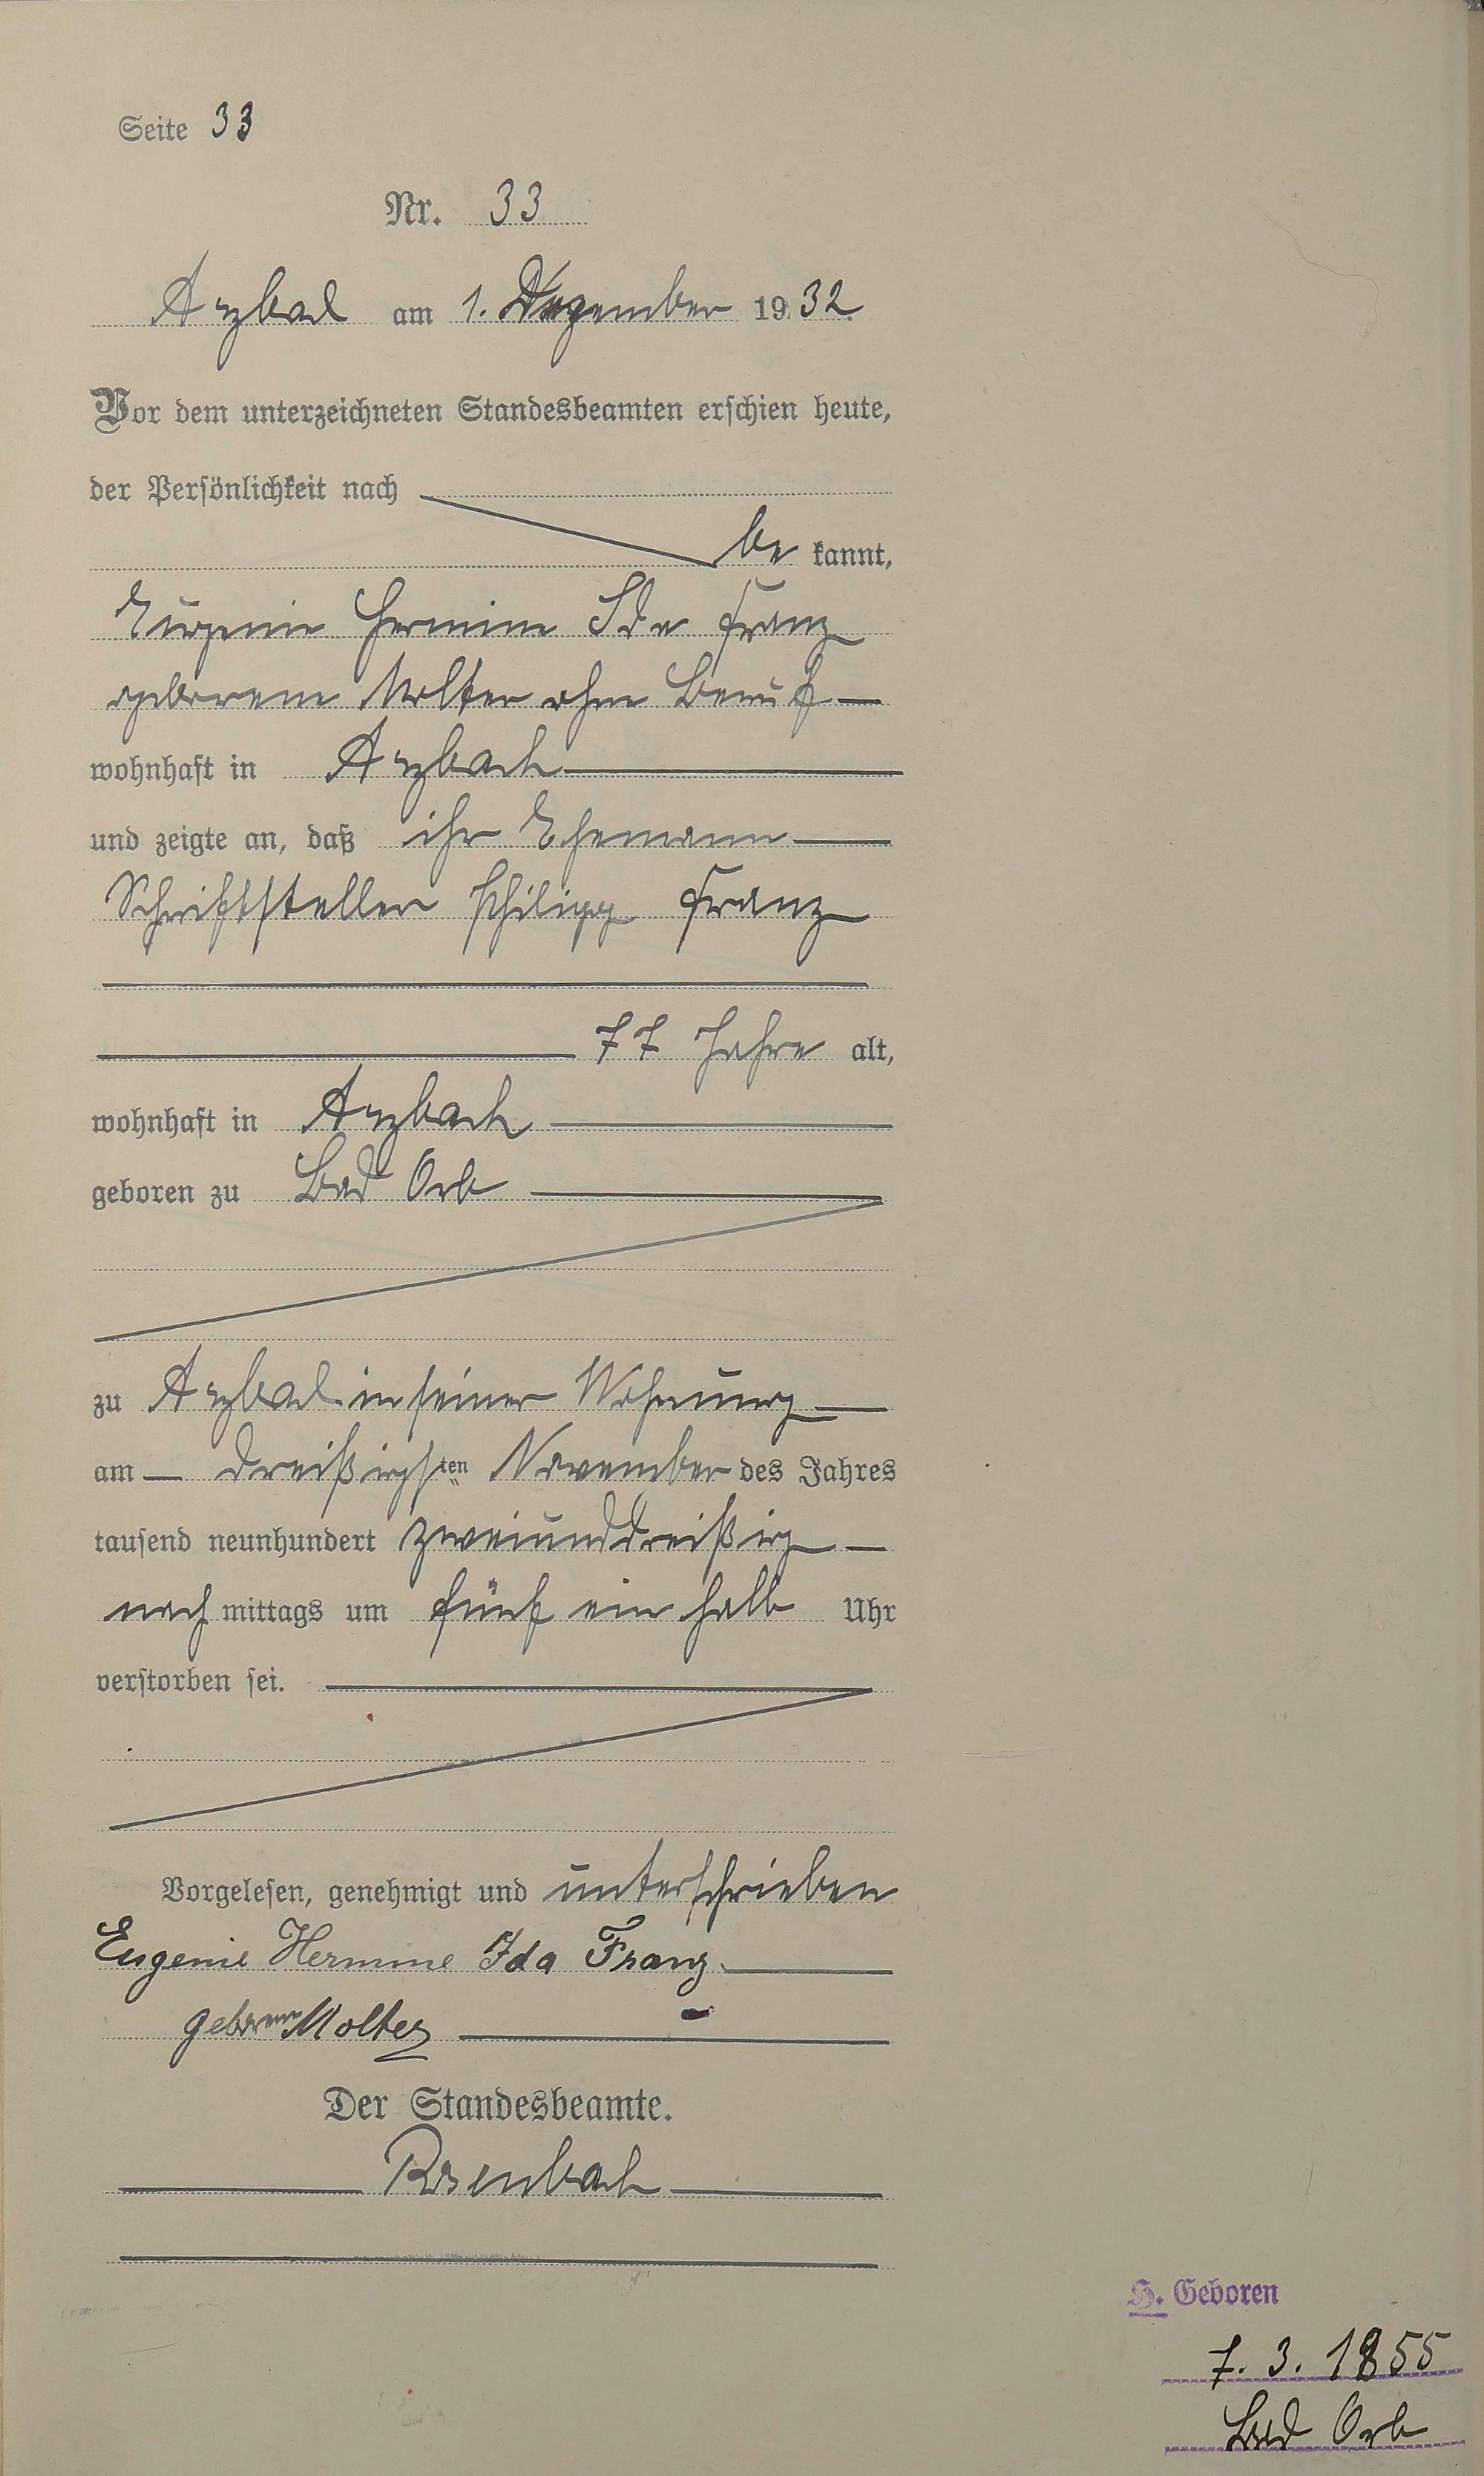 Seite 33
Nr. 33
Arzbach am 1. Dezember 1932.
Vor dem unterzeichneten Standesbeamten erschien heute,
der Persönlichkeit nach
be kannt,
Eugenie Hermine Ida Franz
geborene Molter ohne Beruf
wohnhaft in Arzbach
und zeigte an, daß ihr Ehemann
Schriftsteller Philipp Franz
77 Jahre alt,
wohnhaft in Arzbach
geboren zu Bad Orb
zu Arzbach in seiner Wohnung
am dreißigsten November des Jahres
tausend neunhundert zweiunddreißig
nach mittags um fünf ein halb Uhr
verstorben sei.
Vorgelesen, genehmigt und unterschrieben
Eugenie Hermine Ida Franz
geborene Molter
Der Standesbeamte.
Rosenbach
H. Geboren
7. 3. 1855
Bad Orb